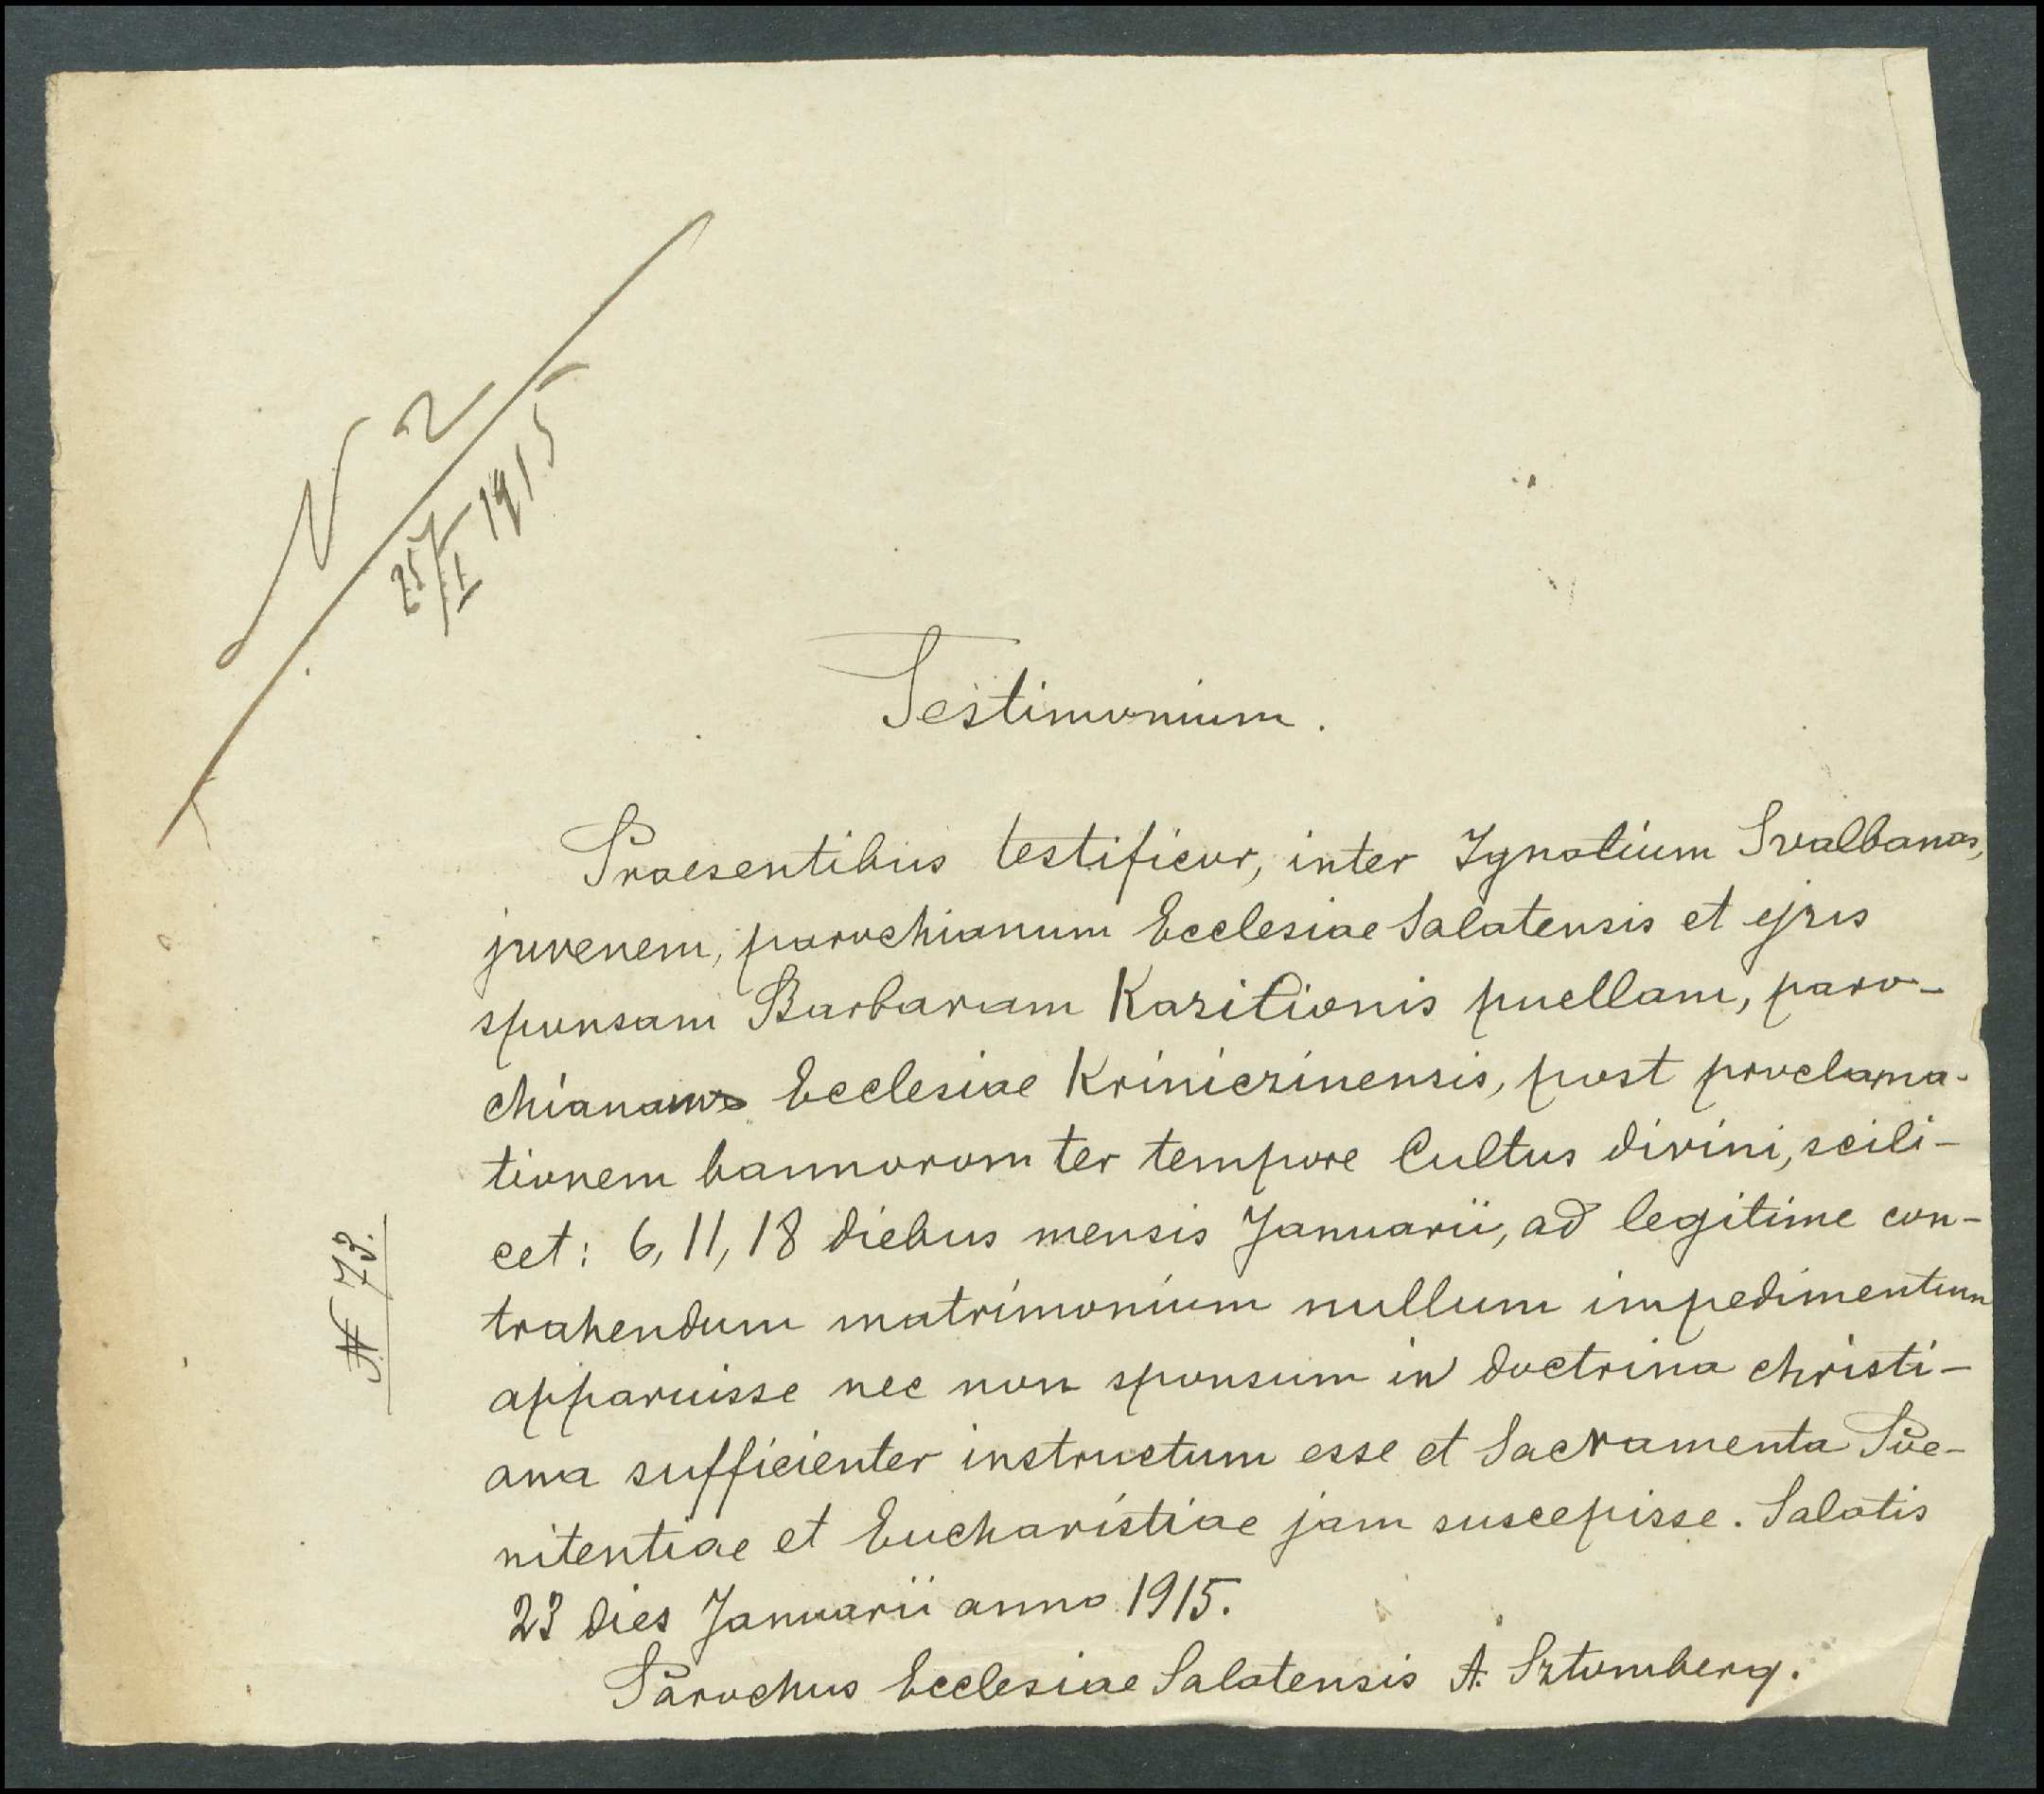 N 2
25/I 1915
Testimonium.
Praesentibus testificor, inter Ignatium Svalbanas,
juvenem, parochianum Ecclesiae Salatensis et ejus
sponsam Barbaram Kazilionis puellam, paro-
chianam Ecclesiae Kriniczinensis, post proclama-
tionem bannorom ter tempore Cultus divini, scili-
cet: 6, 11, 18 diebus mensis Januarii, ad legitime con-
trahendum matrimonium nullum impedimentum
apparuisse nec non sponsum in doctrina christi-
ana sufficienter instructum esse et Sacramenta Poe-
nitentiae et Eucharistiae jam suscepisse. Salatis
23 dies Januarii anno 1915.
Parochus Ecclesiae Salatensis A. Sztomberg.
N 73.